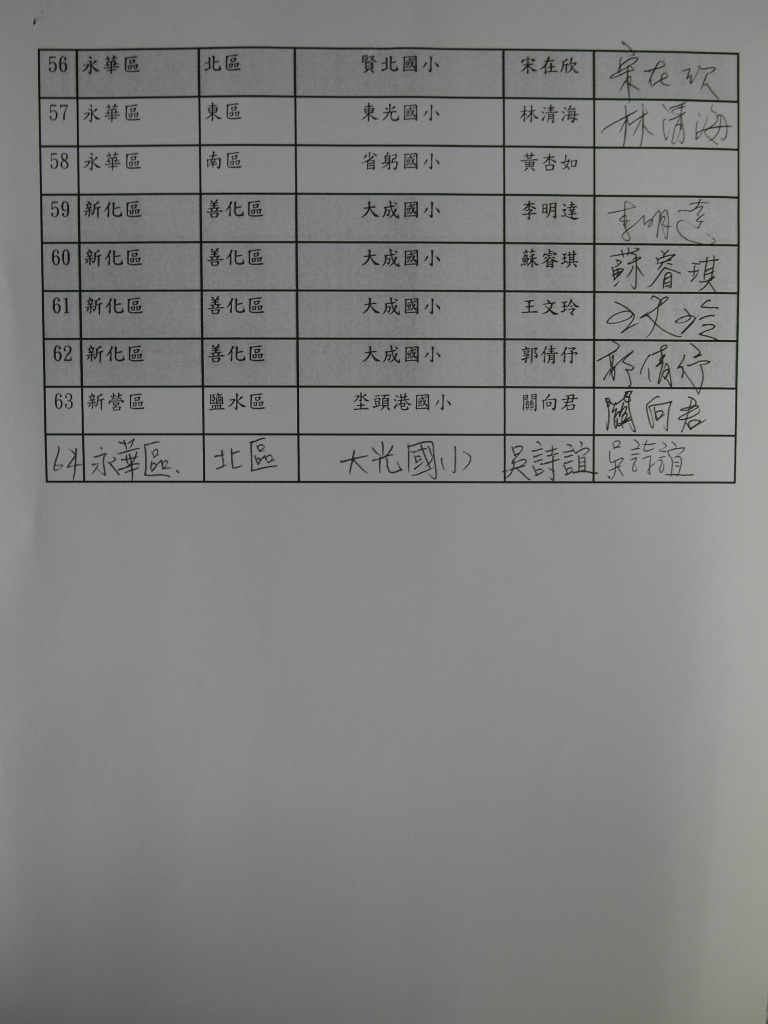 56 永華區 北區 賢北國小 宋在欣 宋在欣
57 永華區 東區 東光國小 林清海 林清海
58 永華區 南區 省躬國小 黃杏如
59 新化區 善化區 大成國小 李明達 李明達
60 新化區 善化區 大成國小 蘇睿琪 蘇睿琪
61 新化區 善化區 大成國小 王文玲 王文玲
62 新化區 善化區 大成國小 郭倩伃 郭倩伃
63 新營區 鹽水區 坔頭港國小 關向君 關向君
64 永華區 北區 大光國小 吳詩誼 吳詩誼